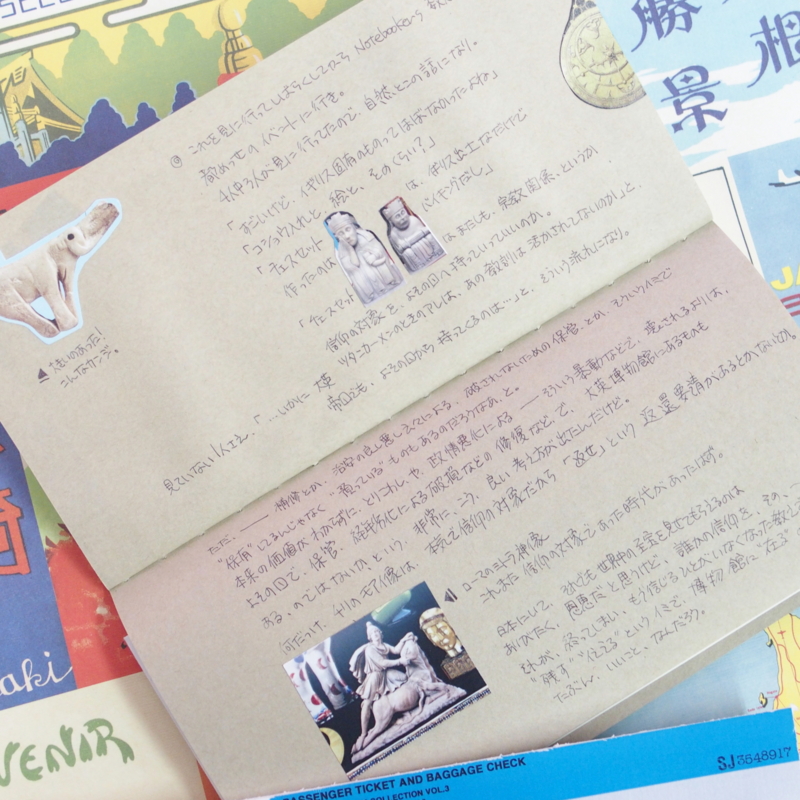 勝景
これを見に行ってしばらくしてから Notebookersを
飲めっせの イベントに行き。
4人中3人が見に行ってたので、自然とこの話になり。
「すごいけど、イギリス固有のものってほぼなかったよね」
「コショウ入れと、絵と、そのくらい?」
「チェスセットは、イギリス出土なだけで
作ったのは バイキングだし」
「チェスセットはまだしも、宗教関係、というか
信仰の対象を、よその国へ持っていっていいのか。
ツタンカーメンのときのアレは、あの教訓は活かされてないのか」と、
▲ 使いのあった!
こんなカンジ。
見ていない1人さえ、「…いかに大英
帝国とも、よその国から持ってくるのは…」と、そういう流れになり。
ただ、── 情勢とか、治安の良し悪しなどによる、破壊されないための保管、とか、そういうイミで
"保有"してるんじゃなく "預っている"ものもあるのだろうなあ、と。
本来の価値がわからずに、とりこわし、や、政情悪化による ── そういう暴動などで、壊されるよりは、
よその国で、保管、経年劣化による破損などの修復など、で、大英博物館にあるものも
ある、のではないか、という、非常に、こう、良い考え方が出たんだけど。
何だっけ、チリのモアイ像は、核して信仰の対象だから「返せ」という返還要請があるとかないとか。
◀ ローマのミトラ神像
これまた信仰の対象であった時代があったはず。
日本にいて、それでも世界中の至宝を見せてもらえるのは
ありがたく、恩恵だと思うけど、誰かの信仰を、その、
それが、終ってしまい、もう信じるひとがいなくなった教え
"残す" "伝える"というイミで、博物館に"在る"
たぶん、いいこと、なんだろう。
aki
VENIR
PASSENGER TICKET AND BAGGAGE CHECK
COLLECTION VOL.3
SJ3648917
JA